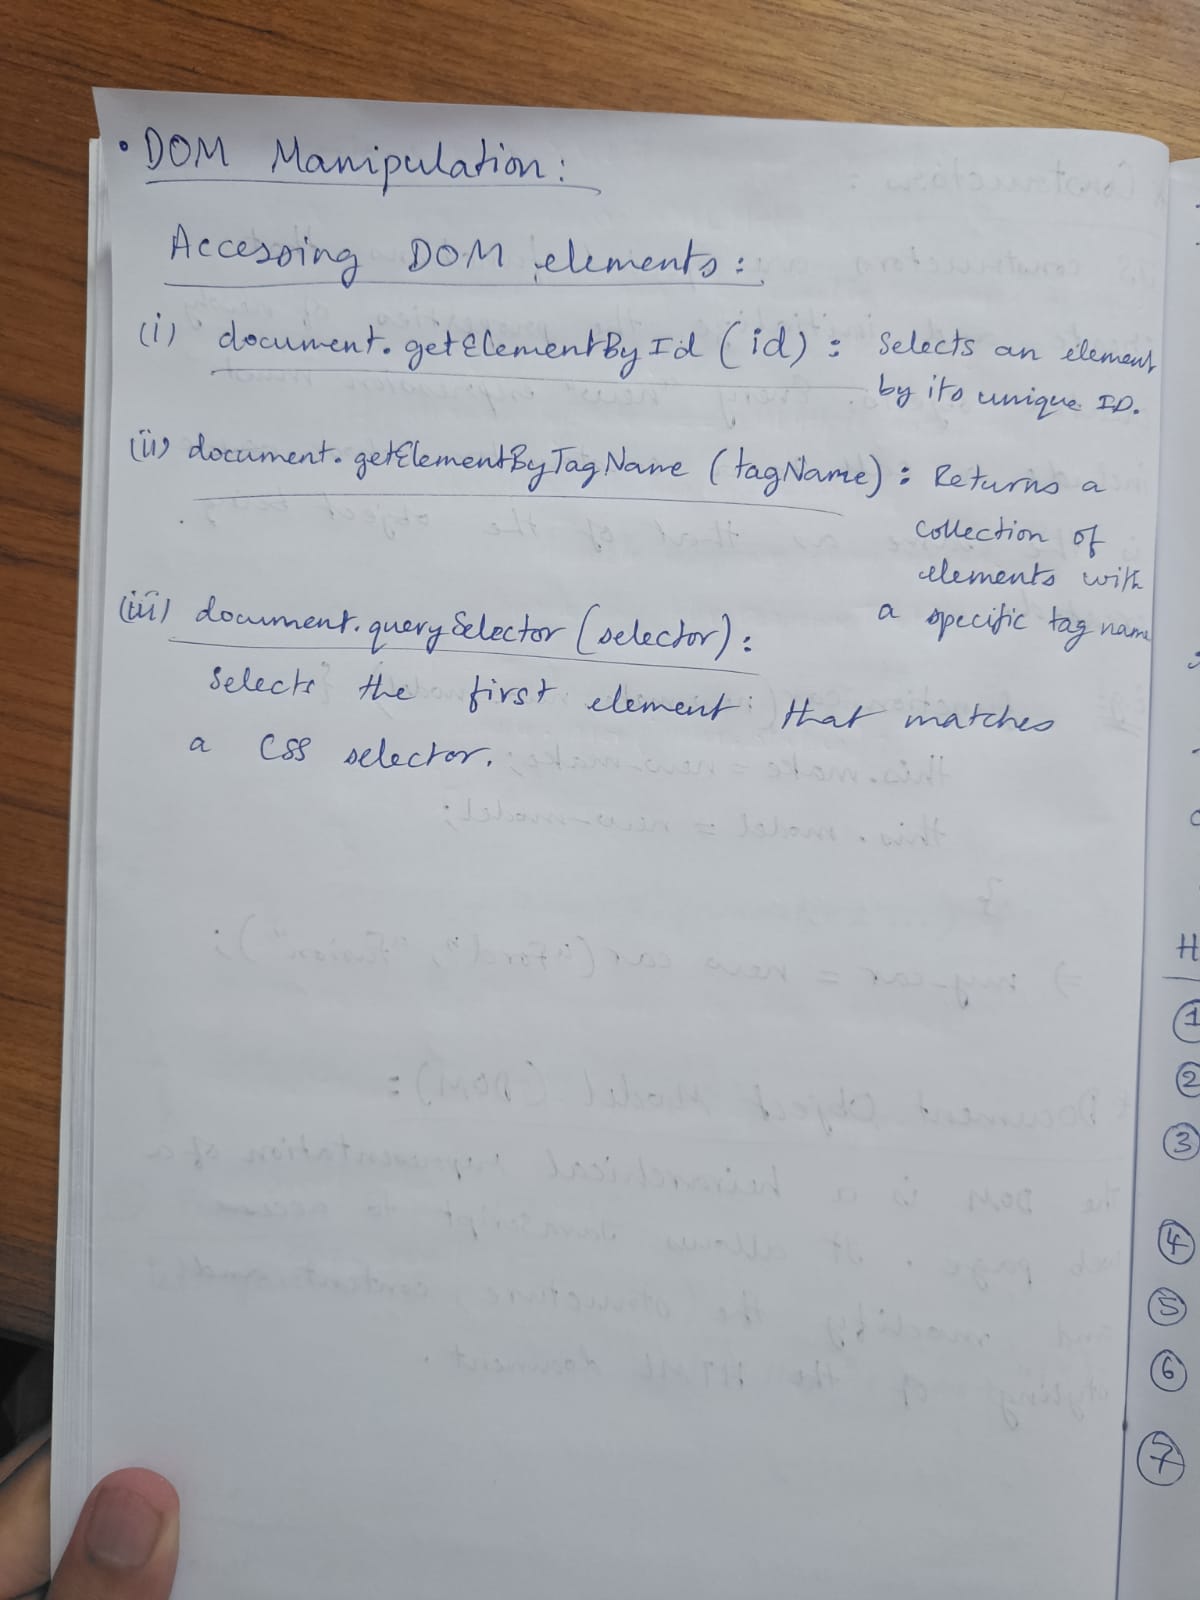 • DOM Manipulation:
Accessing DOM elements:
(i) document.getElementById (id) : Selects an element
by its unique ID.
(ii) document.getElementByTagName (tagName) : Returns a
collection of
elements with
a specific tag name
(iii) document.querySelector (selector) :
Selects the first element that matches
a CSS selector.
H
1
2
3
4
5
6
7